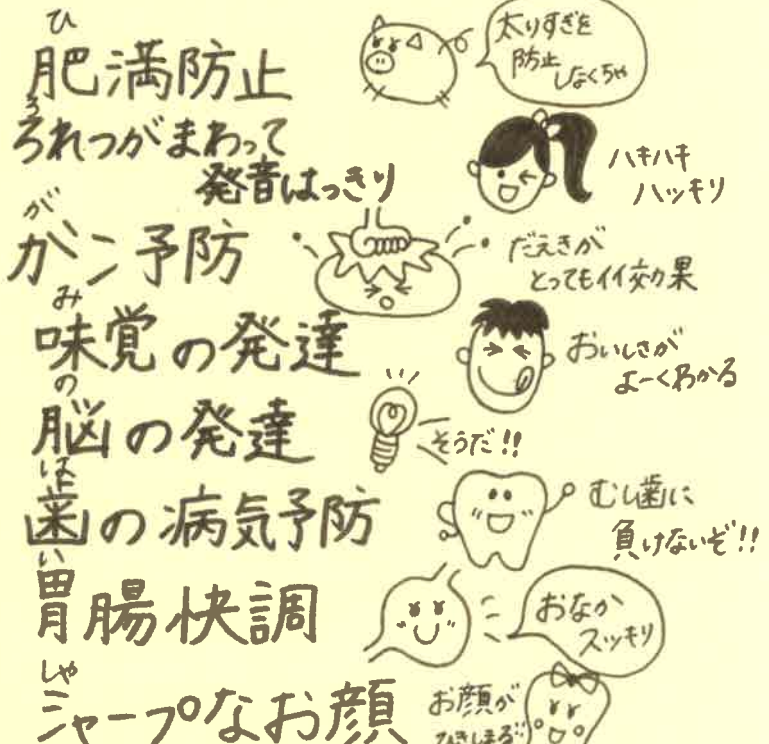 ひ
肥満防止
太りすぎを
防止
しなくちゃ
ろ
ろれつがまわって
発音はっきり
ハキハキ
ハッキリ
が
ガン予防
だえきが
とってもイイ効果
み
味覚の発達
おいしさが
よーくわかる
の
脳の発達
そうだ!!
は
歯の病気予防
むし歯に
負けないぞ!!
い
胃腸快調
おなか
スッキリ
しゃ
シャープなお顔
お顔が
ひきしまる